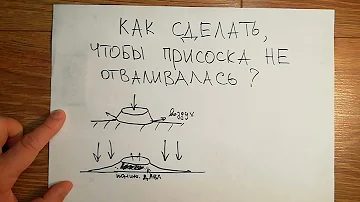 КАК СДЕЛАТЬ,
ЧТОБЫ ПРИСОСКА НЕ
ОТВАЛИВАЛАСЬ?
ВОЗДУХ
ПОНИЖ. ДАВЛ